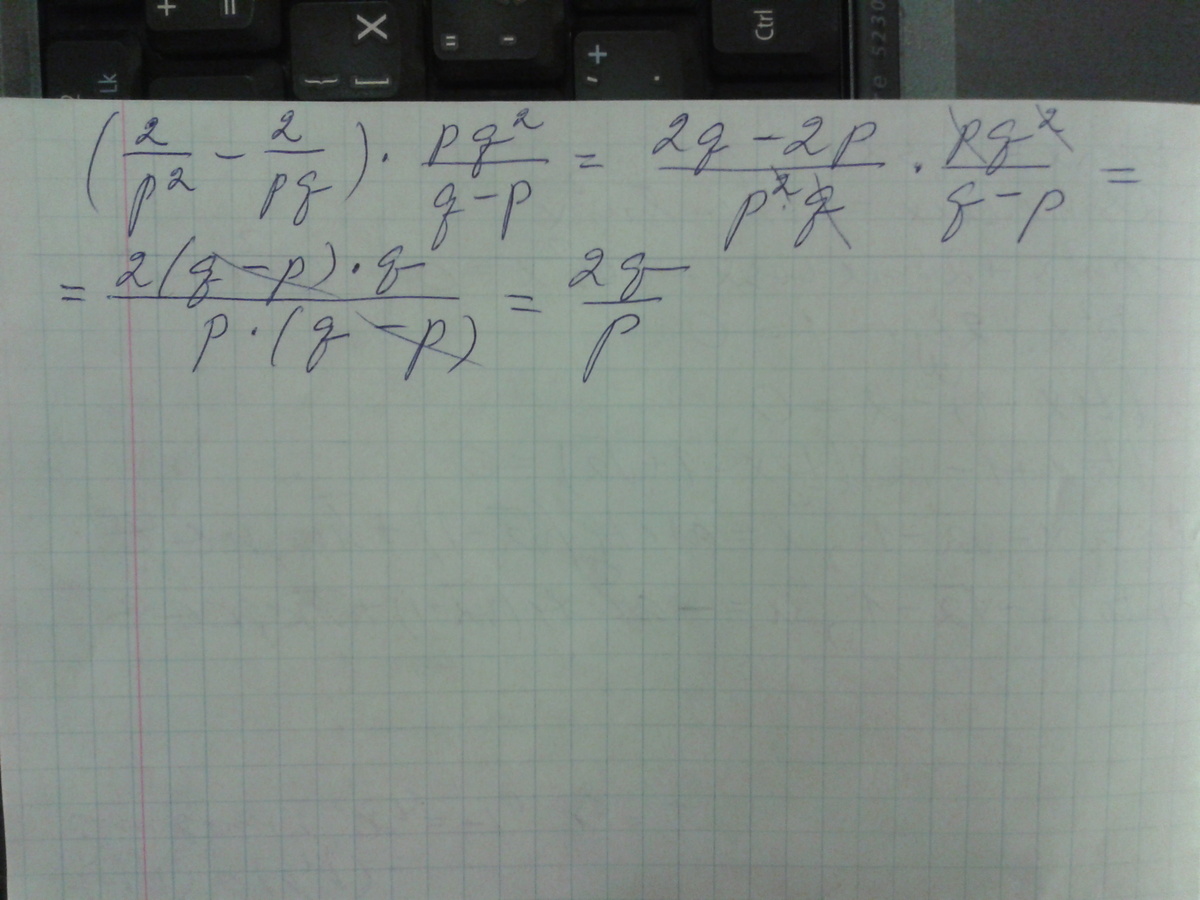 + =
Lk X } ] = - + , . Ctrl re 5230
(2/p² - 2/pq) · pq²/(q-p) = (2q-2p)/(p²q) · pq²/(q-p) =
= 2(q-p)·q/(p·(q-p)) = 2q/p